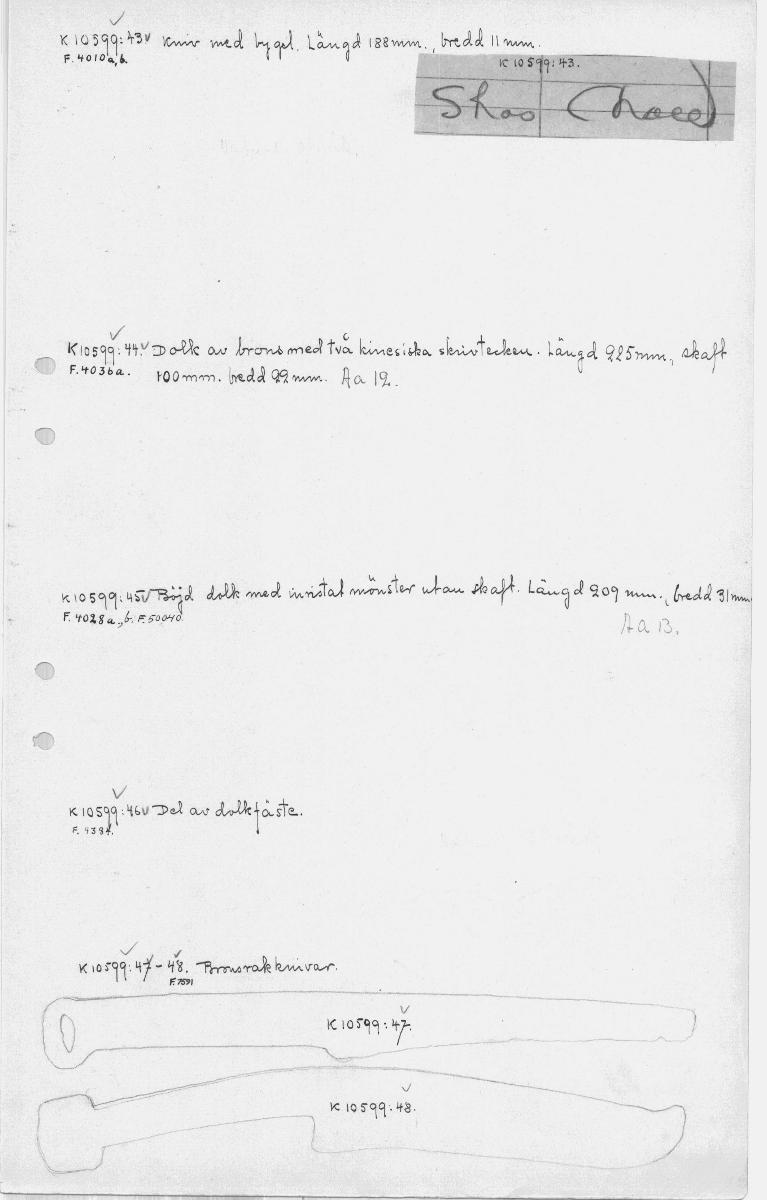 K 10599:43 Kniv med bygel. Längd 188 mm., bredd 11 mm.
F. 4010 a, b.
K 10599:43.
Shao
K 10599:44. Dolk av brons med två kinesiska skrivtecken. Längd 225 mm., skaft
F. 4036 a. 100 mm. bredd 22 mm. Aa 12.
K 10599:45 Böjd dolk med inristat mönster utan skaft. Längd 209 mm., bredd 31 mm.
F. 4028 a., b. F. 50040.
Aa 13.
K 10599:46 Del av dolkfäste.
K 10599:47-48. Bronsrakknivar.
F. 7591
K 10599:47.
K 10599:48.